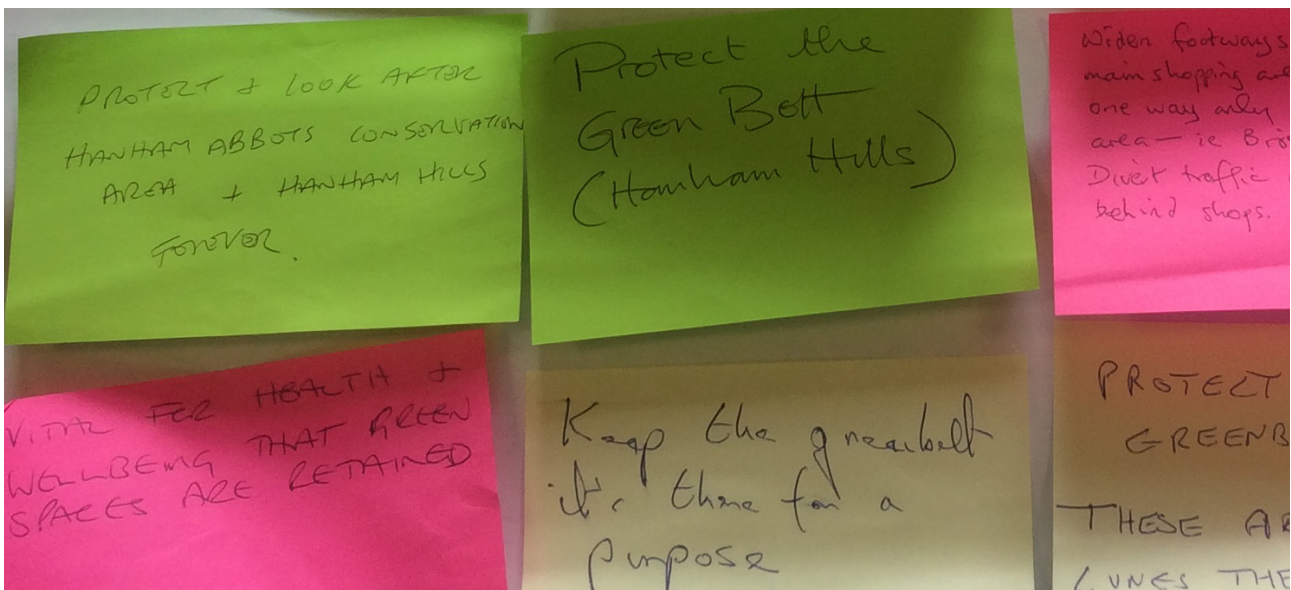 PROTECT + LOOK AFTER
HANHAM ABBOTS CONSERVATION
AREA + HANHAM HILLS
FOREVER.
Protect the
Green Belt
(Hanham Hills)
Widen footways
main shopping
one way only
area - ie
Divert traffic
behind shops.
VITAL FOR HEALTH +
WELLBEING THAT GREEN
SPACES ARE RETAINED
Keep the greenbelt
it's there for a
purpose
PROTECT
GREENB
THESE
THE